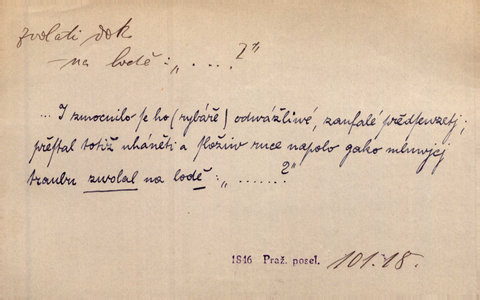 zvolati dok.
na lodě: „ . . . . ?"
... I zmocnilo se ho (rybáře) odwážliwé, zaufalé předsewzetj;
přestal totiž uháněti a složiw ruce napolo gako mluwjcj
traubu zwolal na lodě: „ ....... ?"
1846 Praž. posel. 101.18.